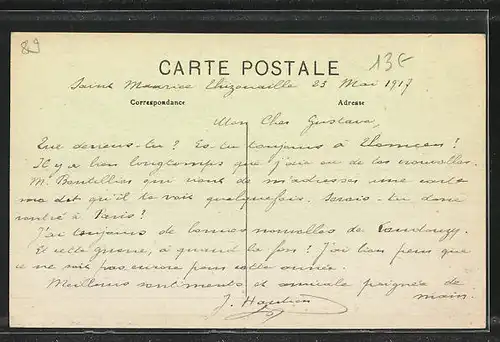 89
13€
CARTE POSTALE
Saint Maurice Thizouaille 23 Mai 1917
Correspondance
Adresse
Mon Cher Gustave,
Que deviens-tu ? Es-tu toujours à !
Il y a bien longtemps que j'ai eu de tes nouvelles.
M. qui vient de m'adresser une carte
me dit qu'il te voit quelquefois. Serais-tu donc
rentré à Paris ?
J'ai toujours de bonnes nouvelles de
Et cette guerre, à quand la fin ? J'ai bien peur que
ce ne soit pas encore pour cette année.
Meilleurs sentiments et amicale poignée de
main.
J.